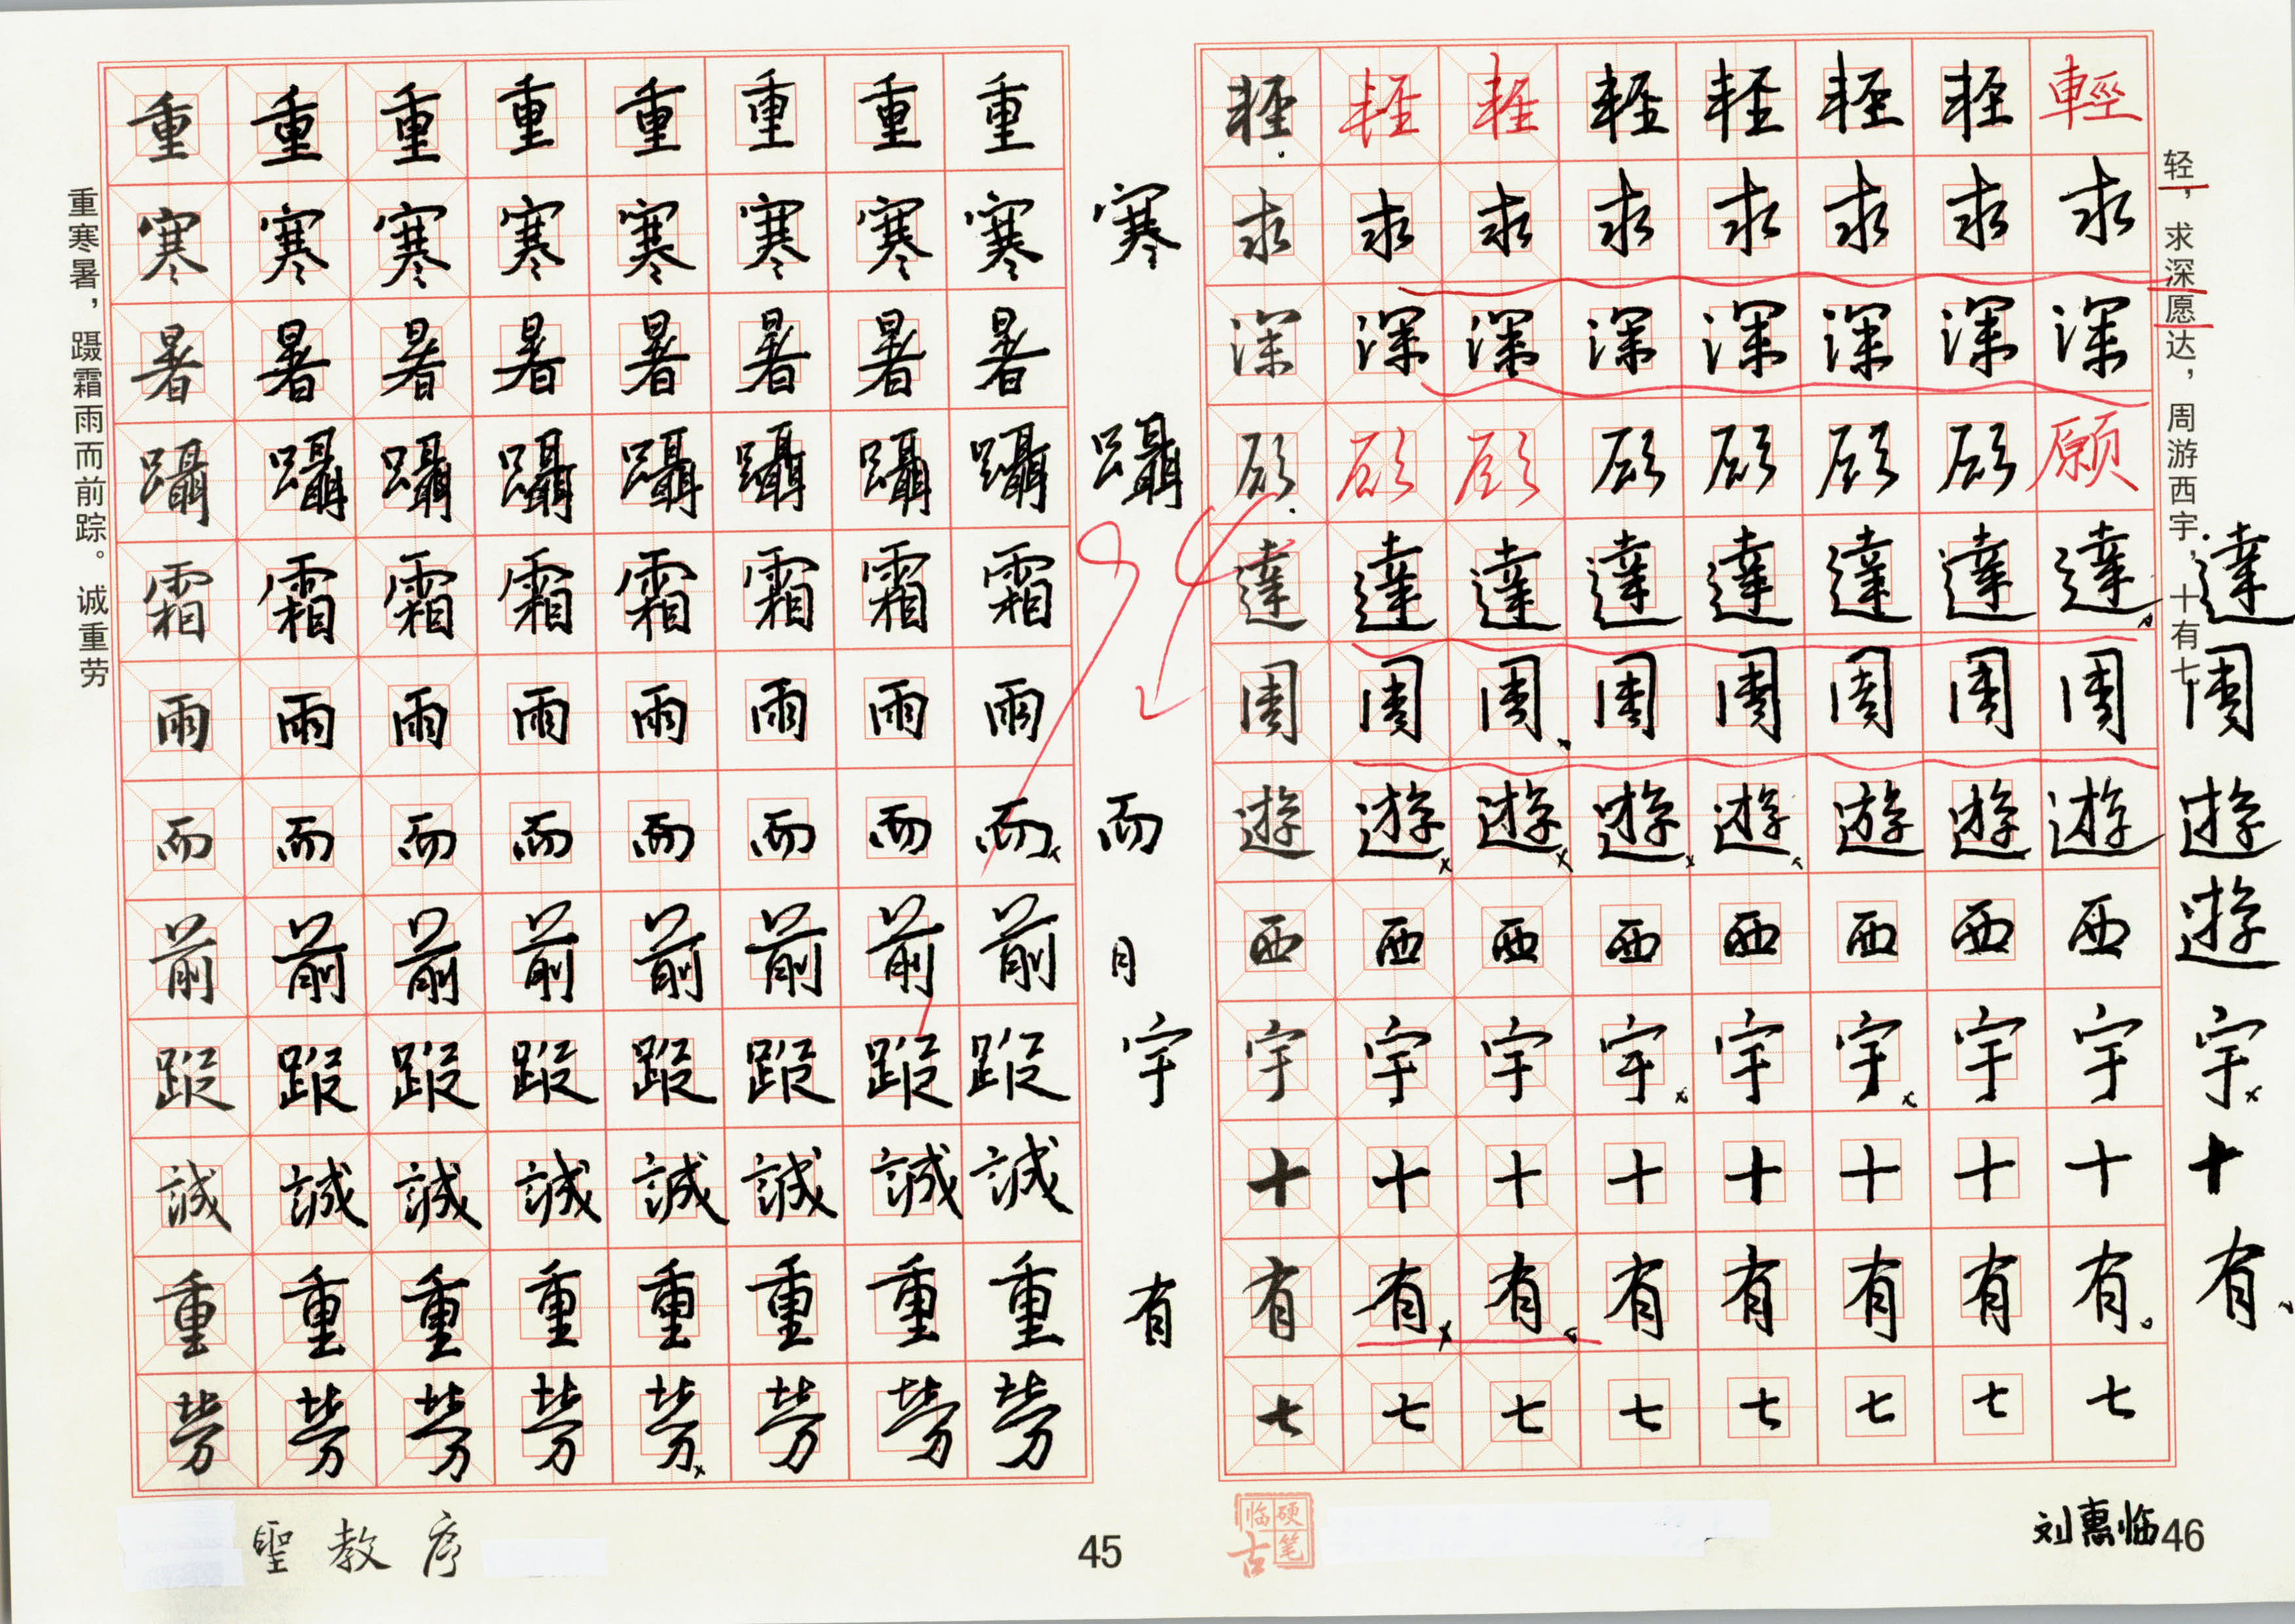 重寒暑，蹑霜雨而前踪。诚重劳
重 重 重 重 重 重 重 重
寒 寒 寒 寒 寒 寒 寒 寒 寒
暑 暑 暑 暑 暑 暑 暑 暑
躡 躡 躡 躡 躡 躡 躡 躡 躡
霜 霜 霜 霜 霜 霜 霜 霜
雨 雨 雨 雨 雨 雨 雨 雨
而 而 而 而 而 而 而 而 而
前 前 前 前 前 前 前 前 月
蹤 蹤 蹤 蹤 蹤 蹤 蹤 蹤 宇
誠 誠 誠 誠 誠 誠 誠 誠
重 重 重 重 重 重 重 重 有
勞 勞 勞 勞 勞 勞 勞 勞
聖教序
45
94
輕 輕 輕 輕 輕 輕 輕 輕
求 求 求 求 求 求 求 求
深 深 深 深 深 深 深 深
願 願 願 願 願 願 願 愿
達 達 達 達 達 達 達 達 達
周 周 周 周 周 周 周 周 周
遊 遊 遊 遊 遊 遊 遊 遊 遊
西 西 西 西 西 西 西 西 遊
宇 宇 宇 宇 宇 宇 宇 宇 宇
十 十 十 十 十 十 十 十 十
有 有 有 有 有 有 有 有 有
七 七 七 七 七 七 七 七
轻，求深愿达，周游西宇，十有七
硬笔临古
刘惠临
46